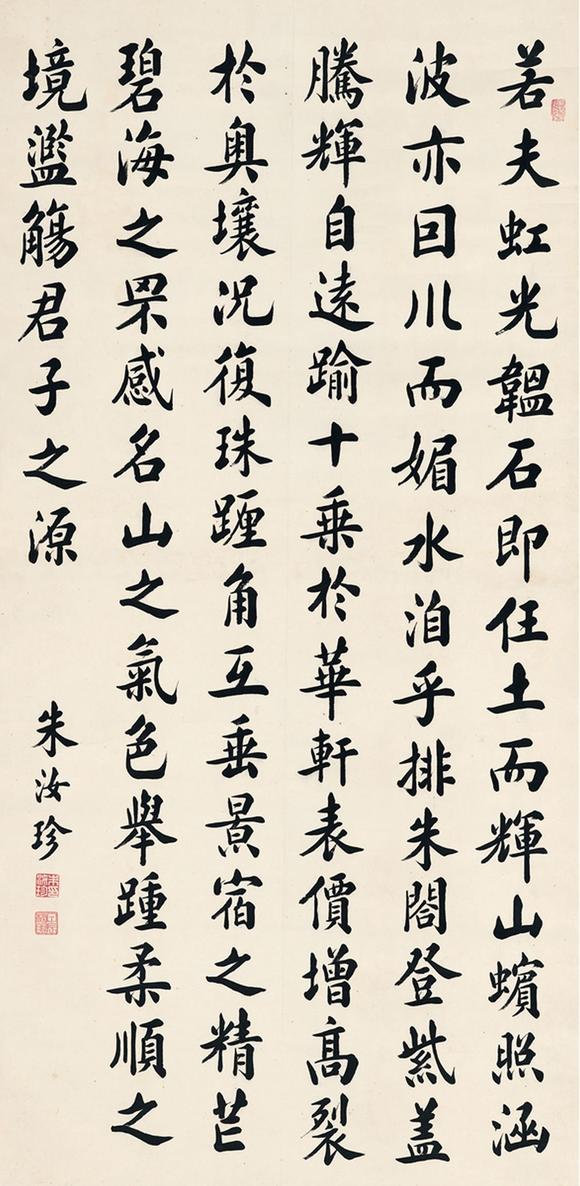 若夫虹光韞石即任土而輝山蠙照涵
波亦回川而媚水洎乎排朱閤登紫蓋
騰輝自遠踰十乗於華軒表價增高裂
於奥壤況復珠躔角互垂景宿之精芒
碧海之罘感名山之氣色舉踵柔順之
境濫觴君子之源
朱汝珍